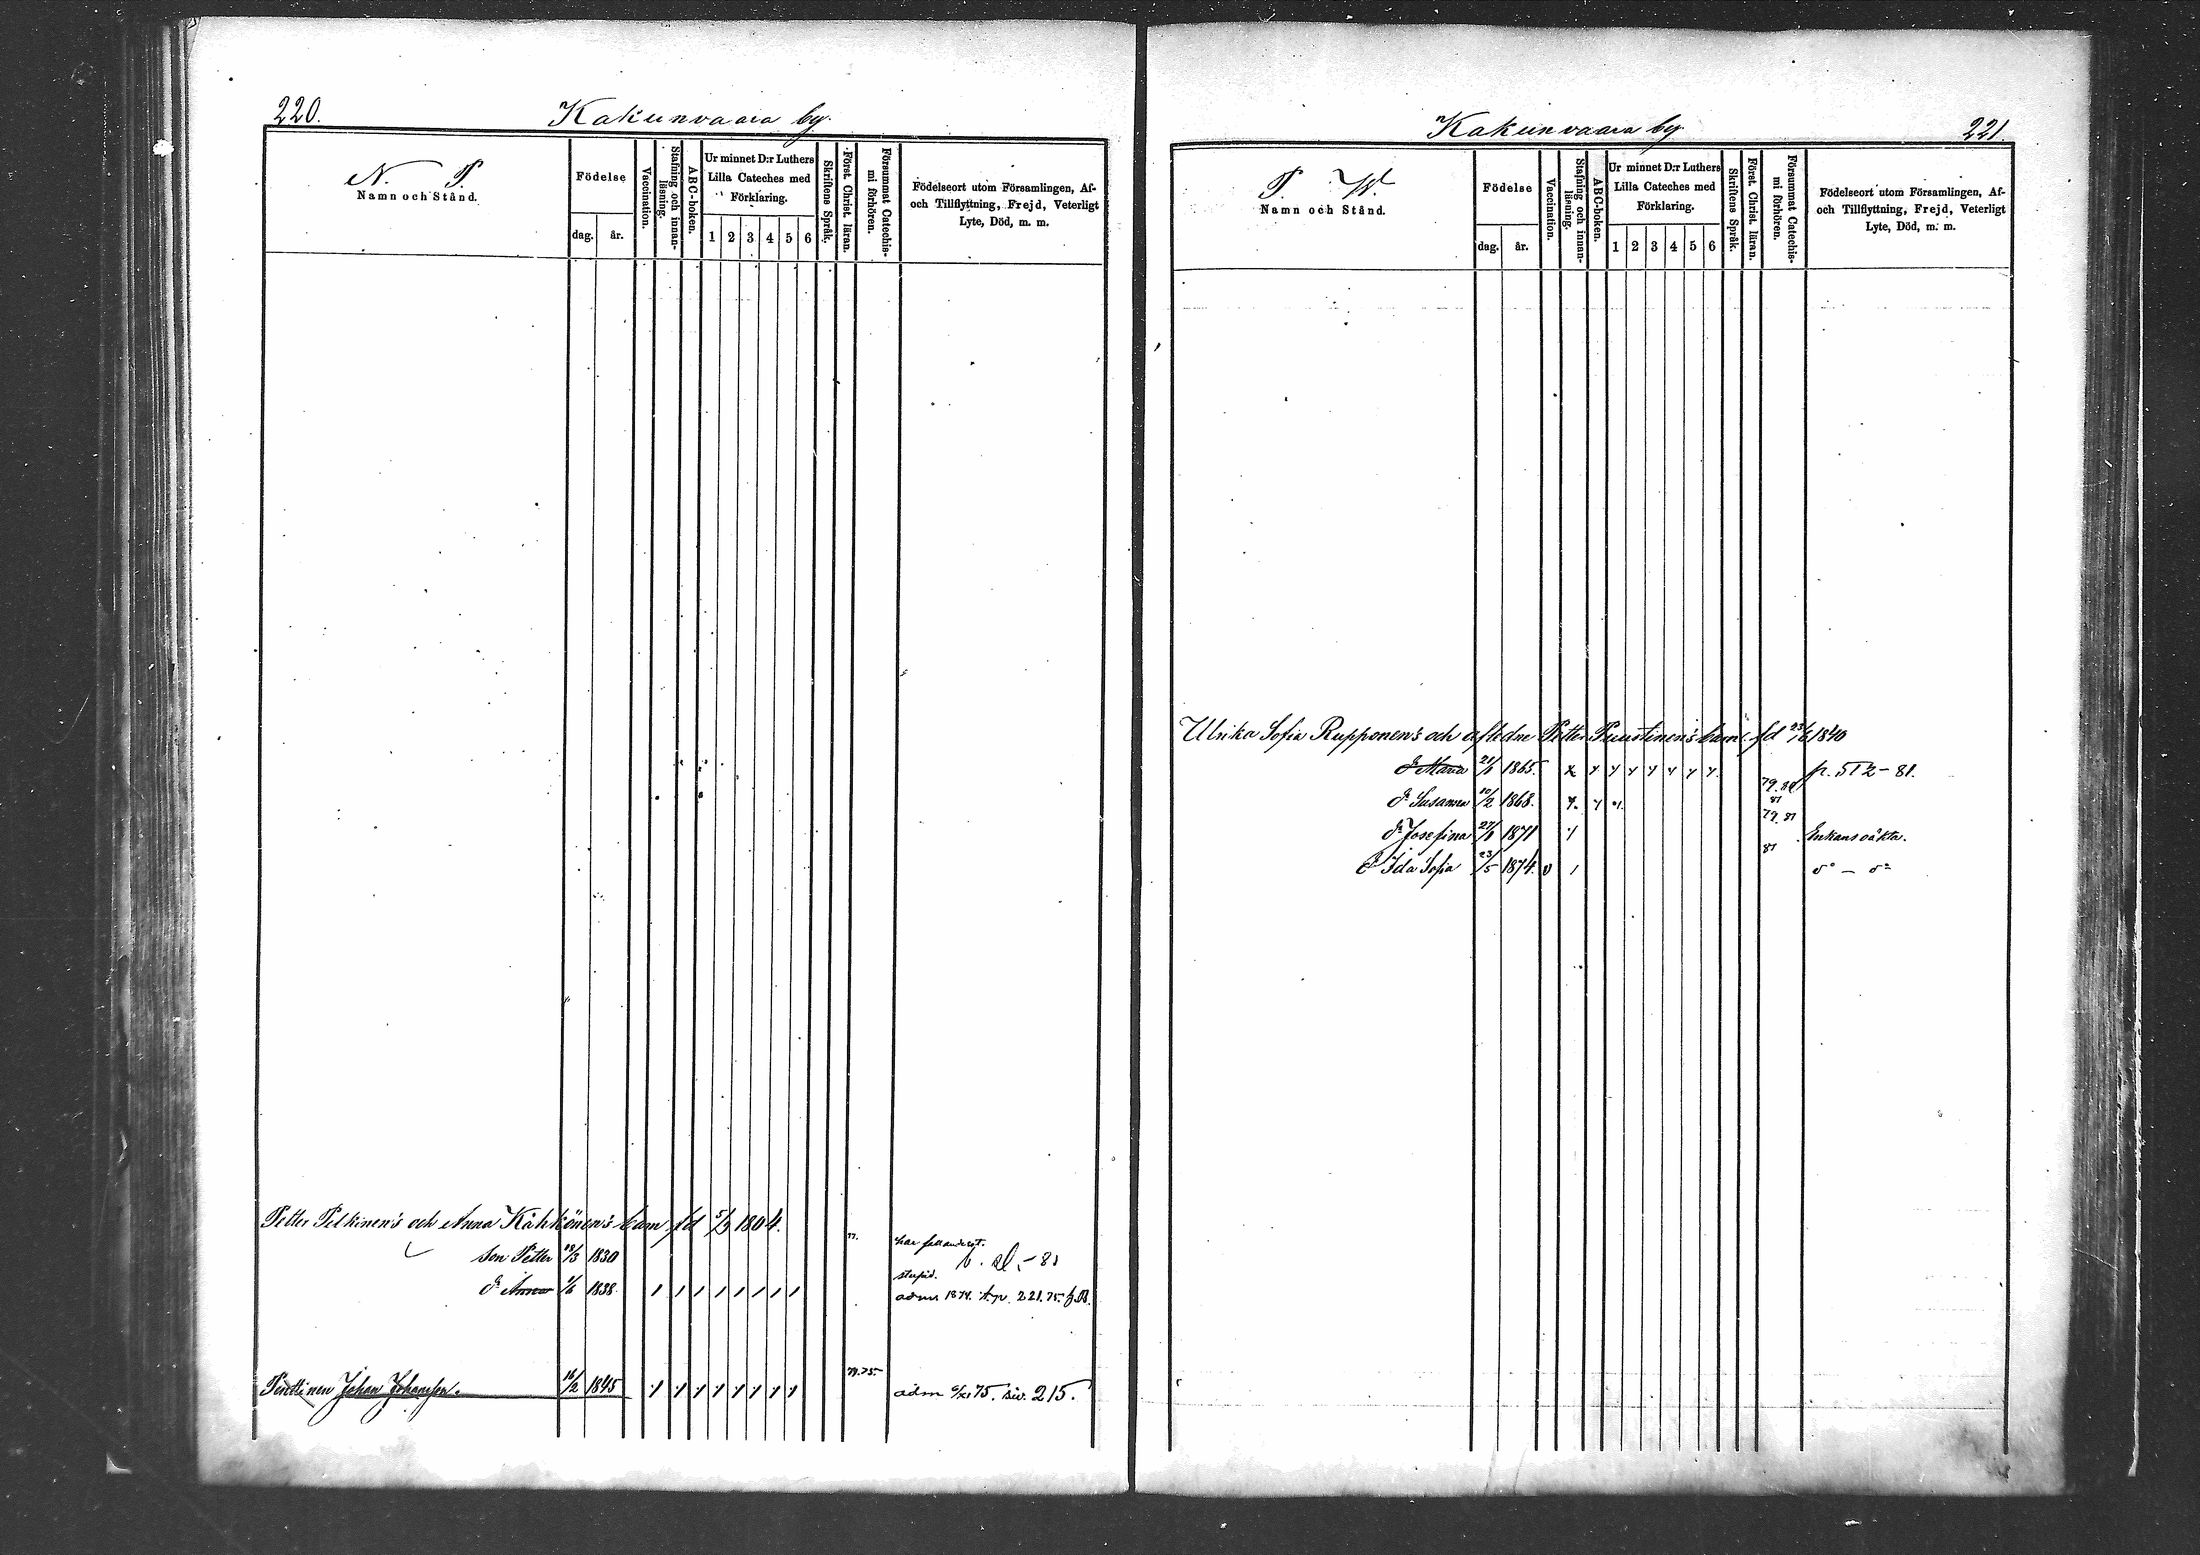 220.
Kakunvaara by.
N. P.
Namn och Stånd.
Födelse
dag. år.
Vaccination.
Stafning och innanläsning.
ABC-boken.
Ur minnet D:r Luthers Lilla Cateches med Förklaring.
1 2 3 4 5 6
Skriftens Språk.
Först. Christ. läran.
Försummat Catechismi förhören.
Födelseort utom Församlingen, Af-
och Tillflyttning, Frejd, Veterligt
Lyte, Död, m. m.
Petter Pelkinen's och Anna Kähkönen's barn fd 5/9 1804.
Son Petter 18/3 1830 77. har fallandesot. -81
stupid.
dr Anna 1/6 1838. adm 1874. 221. 75.
Penttinen Johan Johansson. 16/2 1845 74.75. adm 75. siv. 215.
Kakunvaara by
221.
P. W.
Namn och Stånd.
Födelse
dag. år.
Vaccination.
Stafning och innanläsning.
ABC-boken.
Ur minnet D:r Luthers Lilla Cateches med Förklaring.
1 2 3 4 5 6
Skriftens Språk.
Först. Christ. läran.
Försummat Catechismi förhören.
Födelseort utom Församlingen, Af-
och Tillflyttning, Frejd, Veterligt
Lyte, Död, m. m.
Ulrika Sofia Rupponen's och aflidne Petter Puustinen's barn fd 23/6 1840
dr Maria 21/1 1865. p. 512-81.
dr Susanna 10/2 1868. 79.80 81
dr Josefina 27/1 1871 79. 81 Enkans oäkta.
dr Ida Sofia 23/5 1874. v 81 do — do